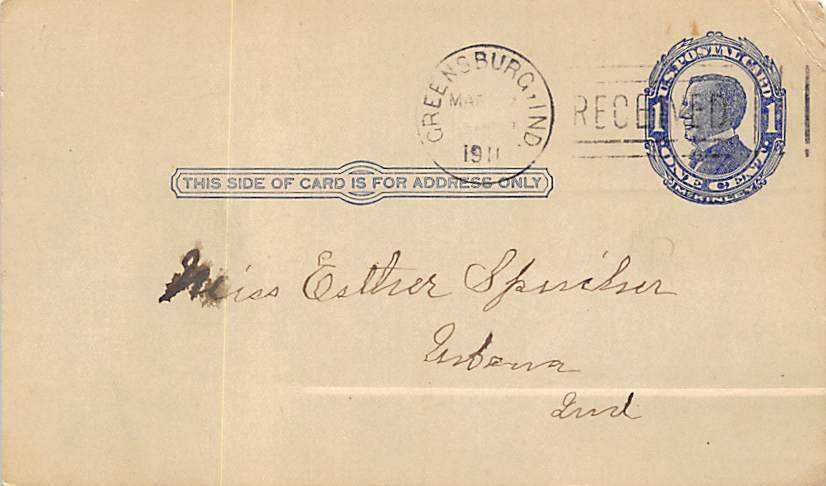 GREENSBURG, IND.
MAR
1911
RECEIVED
U.S. POSTAL CARD
1 1
ONE CENT
McKINLEY
THIS SIDE OF CARD IS FOR ADDRESS ONLY
Miss Esther Speicher
Urbana
Ind